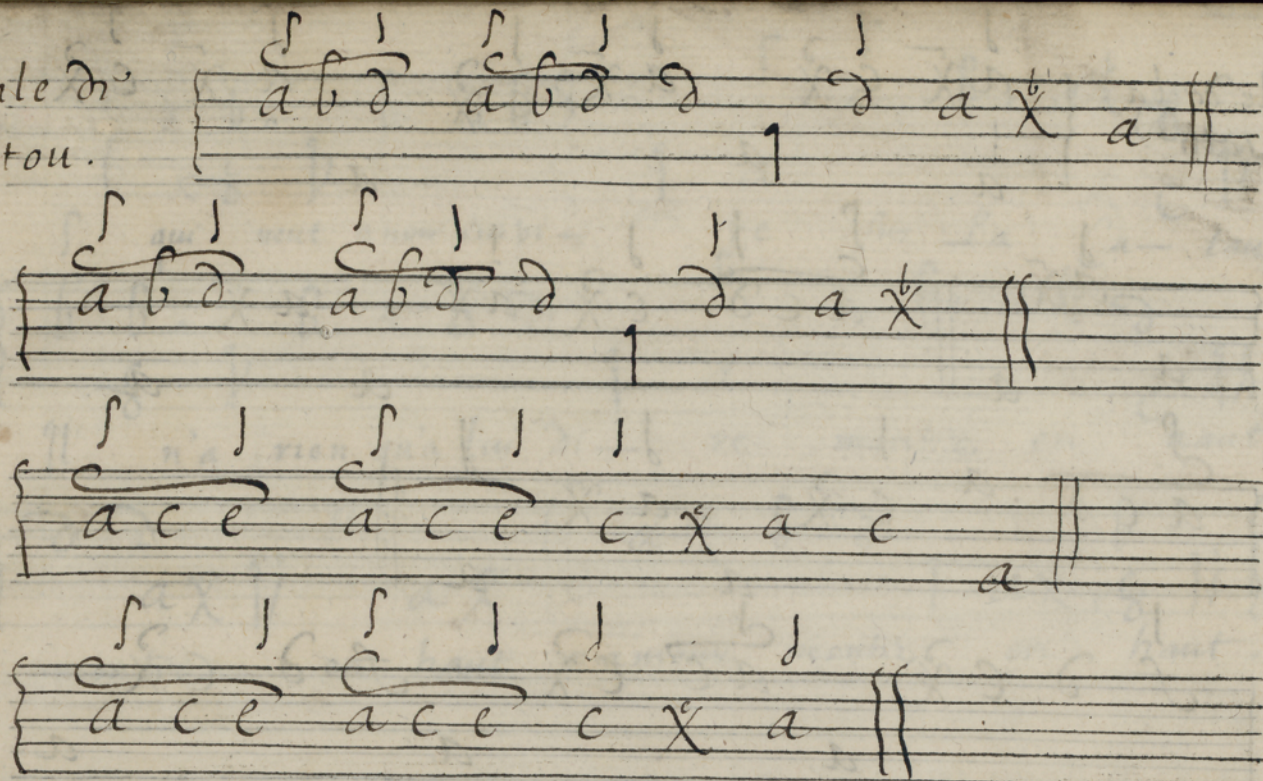 le di
tou.
a b d a b d d d a x a
a b d a b d d d a x
a c e a c e c x a c a
a c e a c e c x a